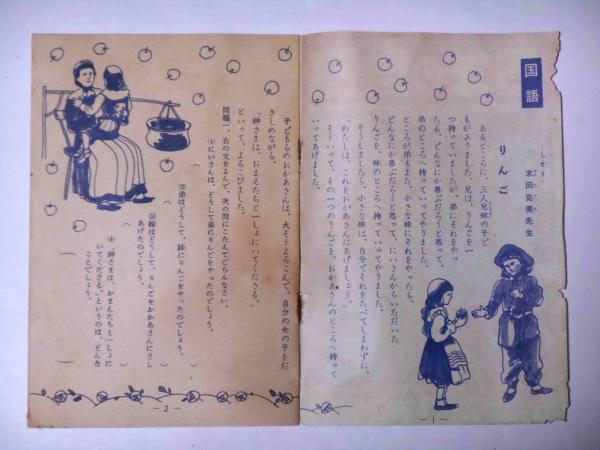 国語
りんご
末田克美先生
あるところに、三人兄妹の子ど
もがありました。兄は、りんごを一
つ持っていましたが、弟にそれをやっ
たら、どんなにか喜ぶだろうと思って、
弟のところへ持っていってやりました。
ところが弟もまた、小さな妹にそれをやったら、
どんなにか喜ぶだろうと思って、にいさんからいただいた
りんごを、妹のところへ持っていってやりました。
そうしましたら、小さな妹は、自分でそれをたべてしまわずに、
「わたしは、これをおかあさんにあげましょう。」
そういって、その一つのりんごを、おかあさんのところへ持って
いってあげました。
—1—
子どもらのおかあさんは、大そうよろこんで、自分の女の子をだ
きしめながら、
「神さまは、おまえたちと一しょにいてくださる。」
といって、よろこびました。
問題一、右の文をよんで、次の問にこたえてごらんなさい。
①にいさんは、どうして弟にりんごをやったのでしょう。
( )
②弟はどうして、妹にりんごをやったのでしょう。
( )
③妹はどうして、りんごをおかあさんにさし
あげたのでしょう。
( )
④「神さまは、おまえたちと一しょに
いてくださる。」というのは、どんな
ことでしょう。
( )
—2—